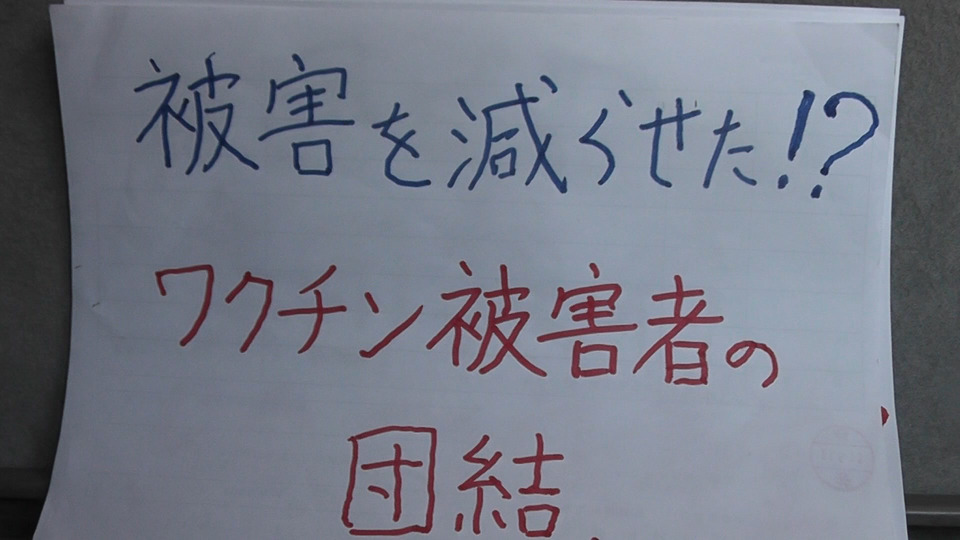 被害を減らせた!?
ワクチン被害者の
団結